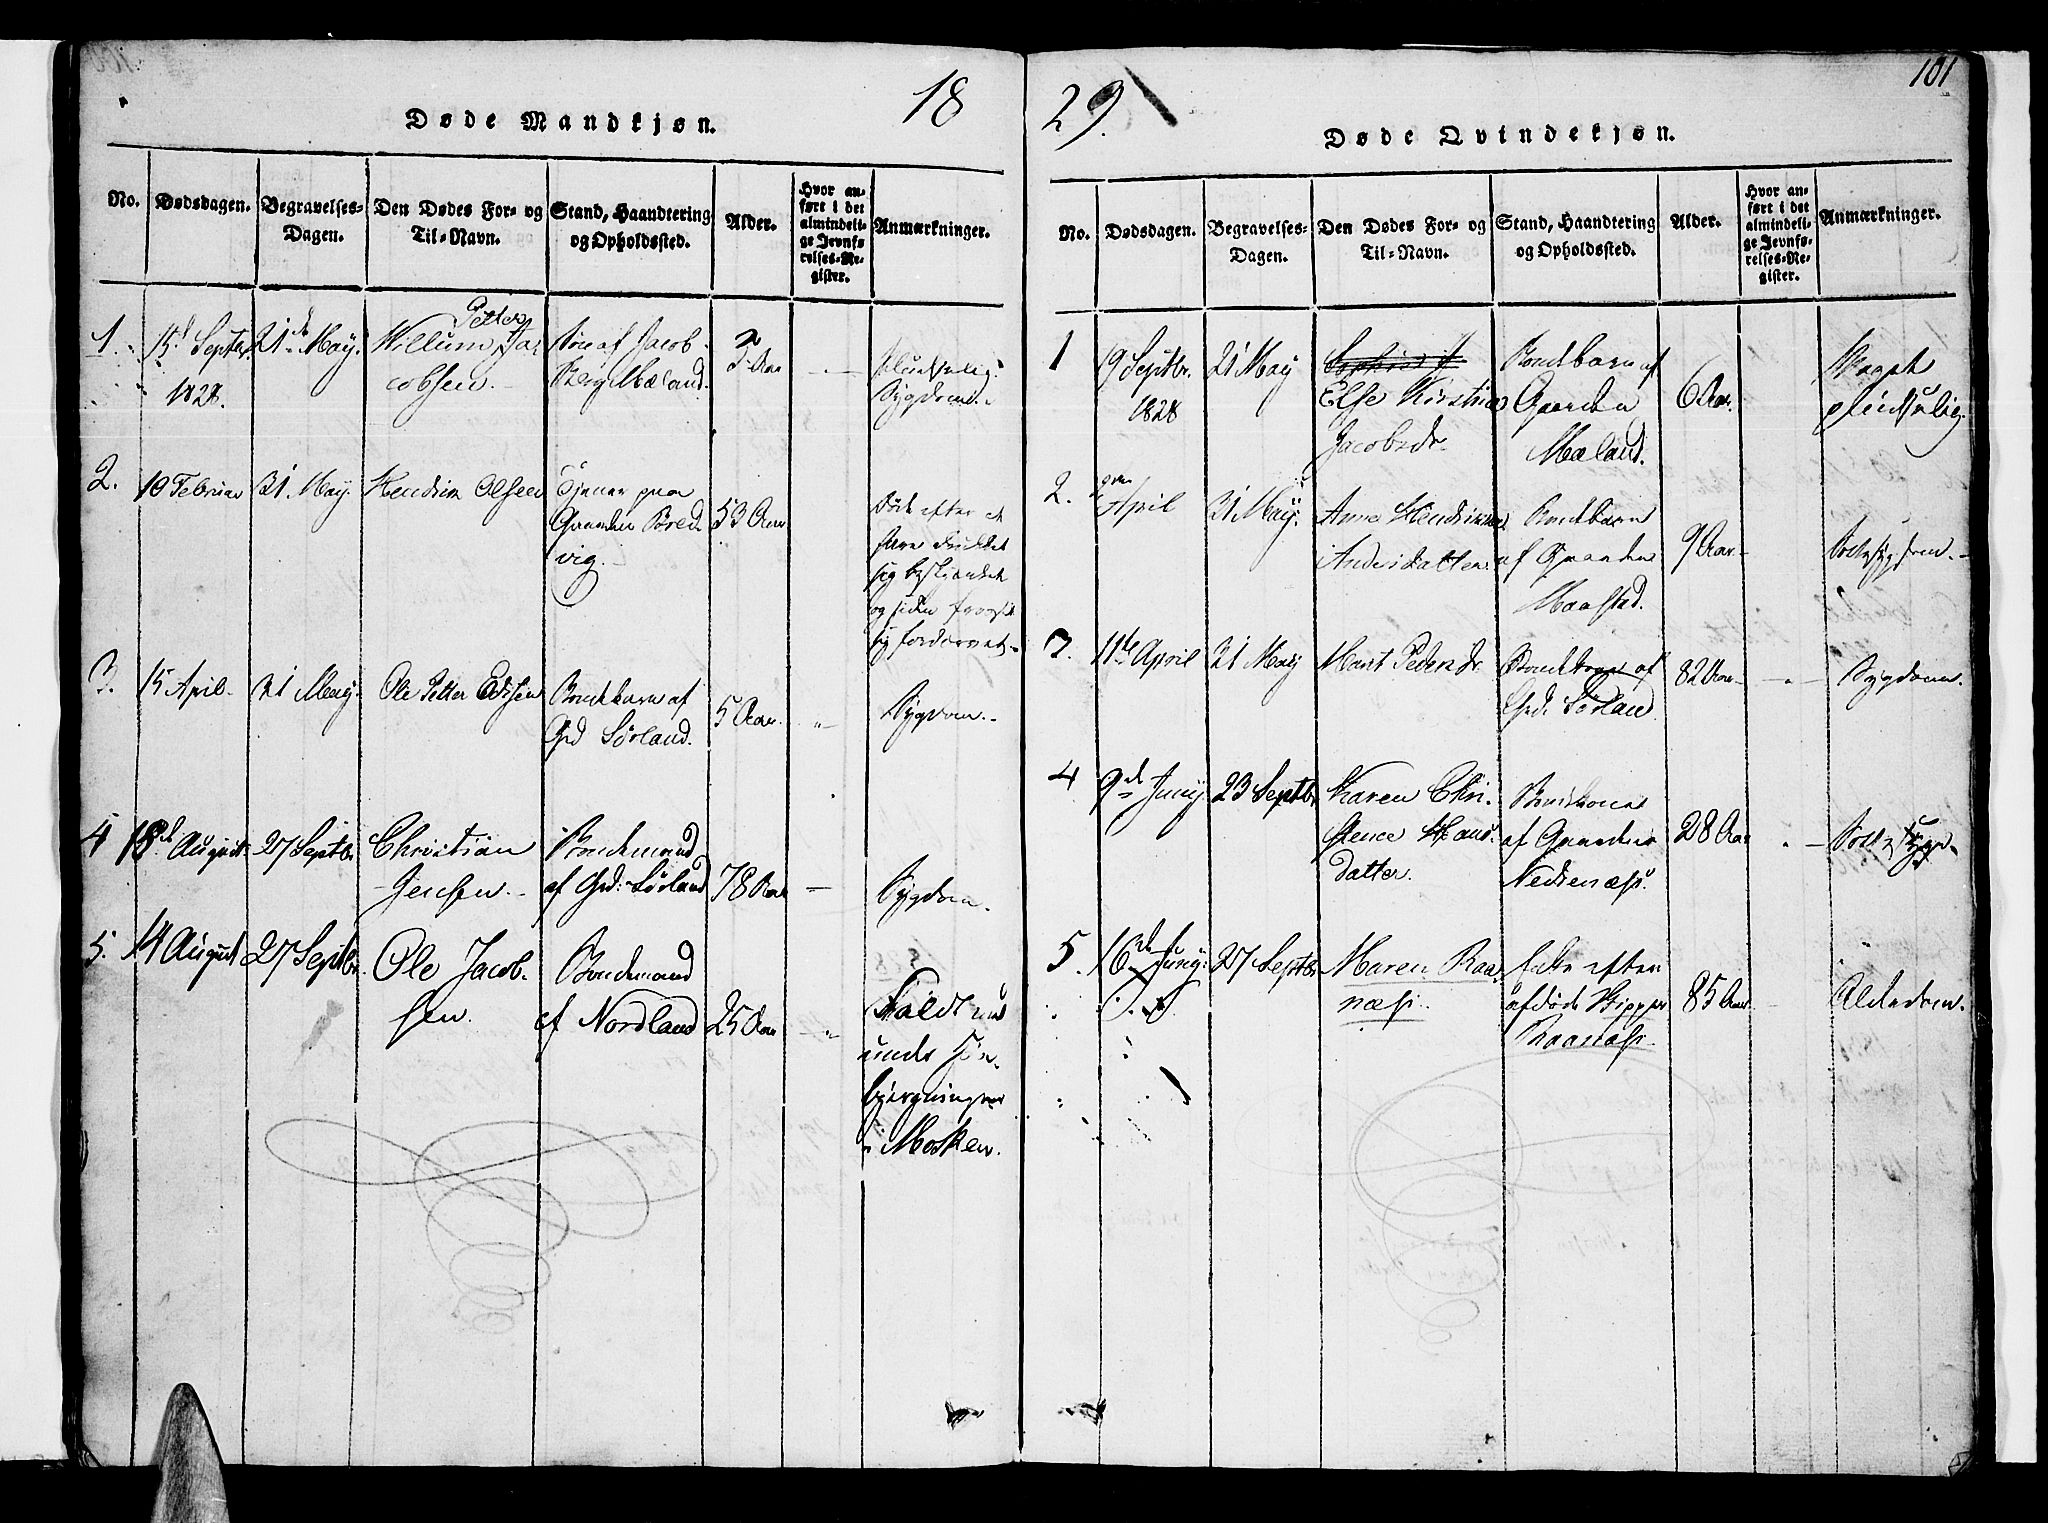 18
29.
101
Døde Mandkjøn.
No.
Dødsdagen.
Begravelses-
Dagen.
Den Dødes For- og
Til-Navn.
Stand, Haandtering
og Opholdssted.
Alder.
Hvor an-
ført i det
almindeli-
ge Jevnfø-
relses-Re-
gister.
Anmærkninger.
1.
15d Septbr
1828.
21de May.
Petter
Willum Ja-
cobsen.
Søn af Jacob
Berg Mæland.
3 Aar
pludselig
Sygdom.
2.
10 Februar
31 May.
Hendrik Olsen
Tjener paa
Gaarden Bred-
vig.
53 Aar
Døde efter at
have drukket
sig beskjænket
og siden frosset
sig fordærvet.
3.
15 April.
31 May.
Ole Petter Edisen
Bondebarn af
Grd Sørland.
5 Aar.
Sygdom.
4
18de August.
27 Septbr
Christian
Jensen.
Bondemand
af Grd: Sørland
78 Aar
Sygdom.
5.
14 August
27 Septbr.
Ole Jacob-
sen.
Bondemand
af Nordland
25 Aar
Faldt ned
under
bjergningen
i Mosken.
Døde Qvindekjøn.
No.
Dødsdagen.
Begravelses-
Dagen.
Den Dødes For- og
Til-Navn.
Stand, Haandtering
og Opholdssted.
Alder.
Hvor an-
ført i det
almindeli-
ge Jevnfø-
relses-Re-
gister.
Anmærkninger.
1
19 Septbr.
1828
21 May
Else Kirstine
Jacobsdr.
Bondebarn af
Gaarden
Mæland.
6 Aar.
pludselig.
2.
2den
April
31 May.
Anne Hendrikke
Andersdatter
Bondebarn
af Gaarden
Maastad.
9 Aar
Brystsygdom.
3.
11te April
21 May
Marit Pedersdr
af
Grd: Sørland
82 Aar
Sygdom.
4
9de Juny
23 Septbr.
Karen Chri-
stence Hans-
datter.
Bondekone
af Gaarden
Nedrenæss.
28 Aar
5.
16de Juny.
27 Septbr
Maren Raa-
næss.
Enke efter
afdøde Skipper
Raanæss.
85 Aar
Alderdom.